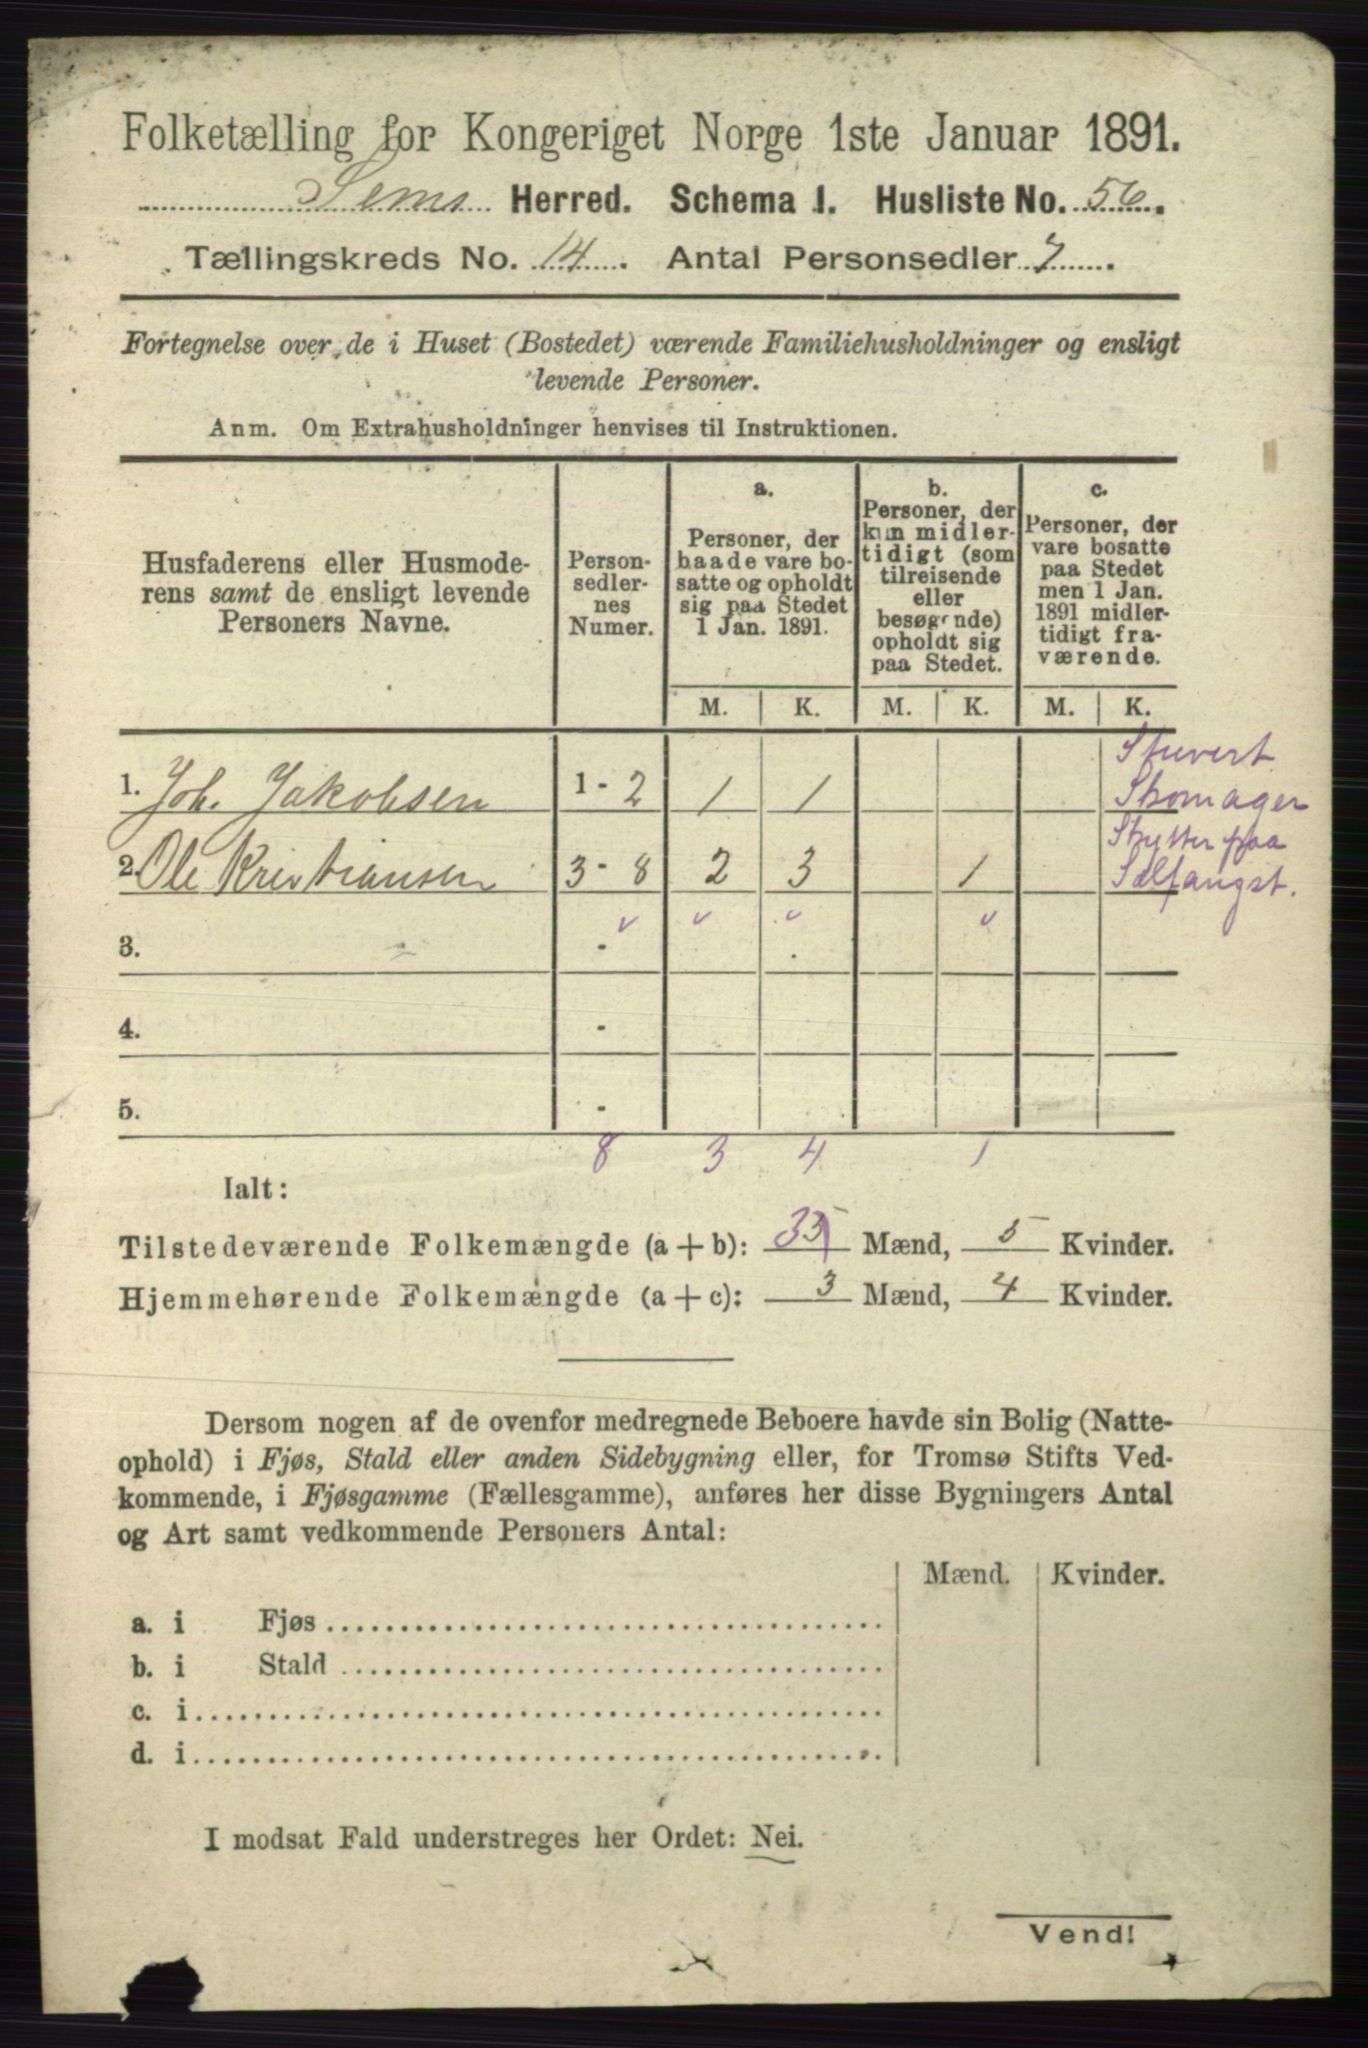 Folketælling for Kongeriget Norge 1ste Januar 1891.
Sems Herred. Schema 1. Husliste No. 56.
Tællingskreds No. 14. Antal Personsedler 7.
Fortegnelse over de i Huset (Bostedet) værende Familiehusholdninger og ensligt
levende Personer.
Anm. Om Extrahusholdninger henvises til Instruktionen.
Husfaderens eller Husmode-
rens samt de ensligt levende
Personers Navne.
Person-
sedler-
nes
Numer.
a.
Personer, der
baade vare bo-
satte og opholdt
sig paa Stedet
1 Jan. 1891.
b.
Personer, der
kun midler-
tidigt (som
tilreisende
eller
besøgende)
opholdt sig
paa Stedet.
c.
Personer, der
vare bosatte
paa Stedet
men 1 Jan.
1891 midler-
tidigt fra-
værende.
M. K. M. K. M. K.
Stuvert
1. Joh. Jakobsen 1 - 2 1 1 Skomager
Skytter paa
2. Ole Kristiansen 3 - 8 2 3 1 Sælfangst.
3. -
4. -
5. -
8 3 4 1
Ialt:
Tilstedeværende Folkemængde (a + b): 3 5 Mænd, 5 Kvinder.
Hjemmehørende Folkemængde (a + c): 3 Mænd, 4 Kvinder.
Dersom nogen af de ovenfor medregnede Beboere havde sin Bolig (Natte-
ophold) i Fjøs, Stald eller anden Sidebygning eller, for Tromsø Stifts Ved-
kommende, i Fjøsgamme (Fællesgamme), anføres her disse Bygningers Antal
og Art samt vedkommende Personers Antal:
Mænd. Kvinder.
a. i Fjøs
b. i Stald
c. i
d. i
I modsat Fald understreges her Ordet: Nei.
Vend!